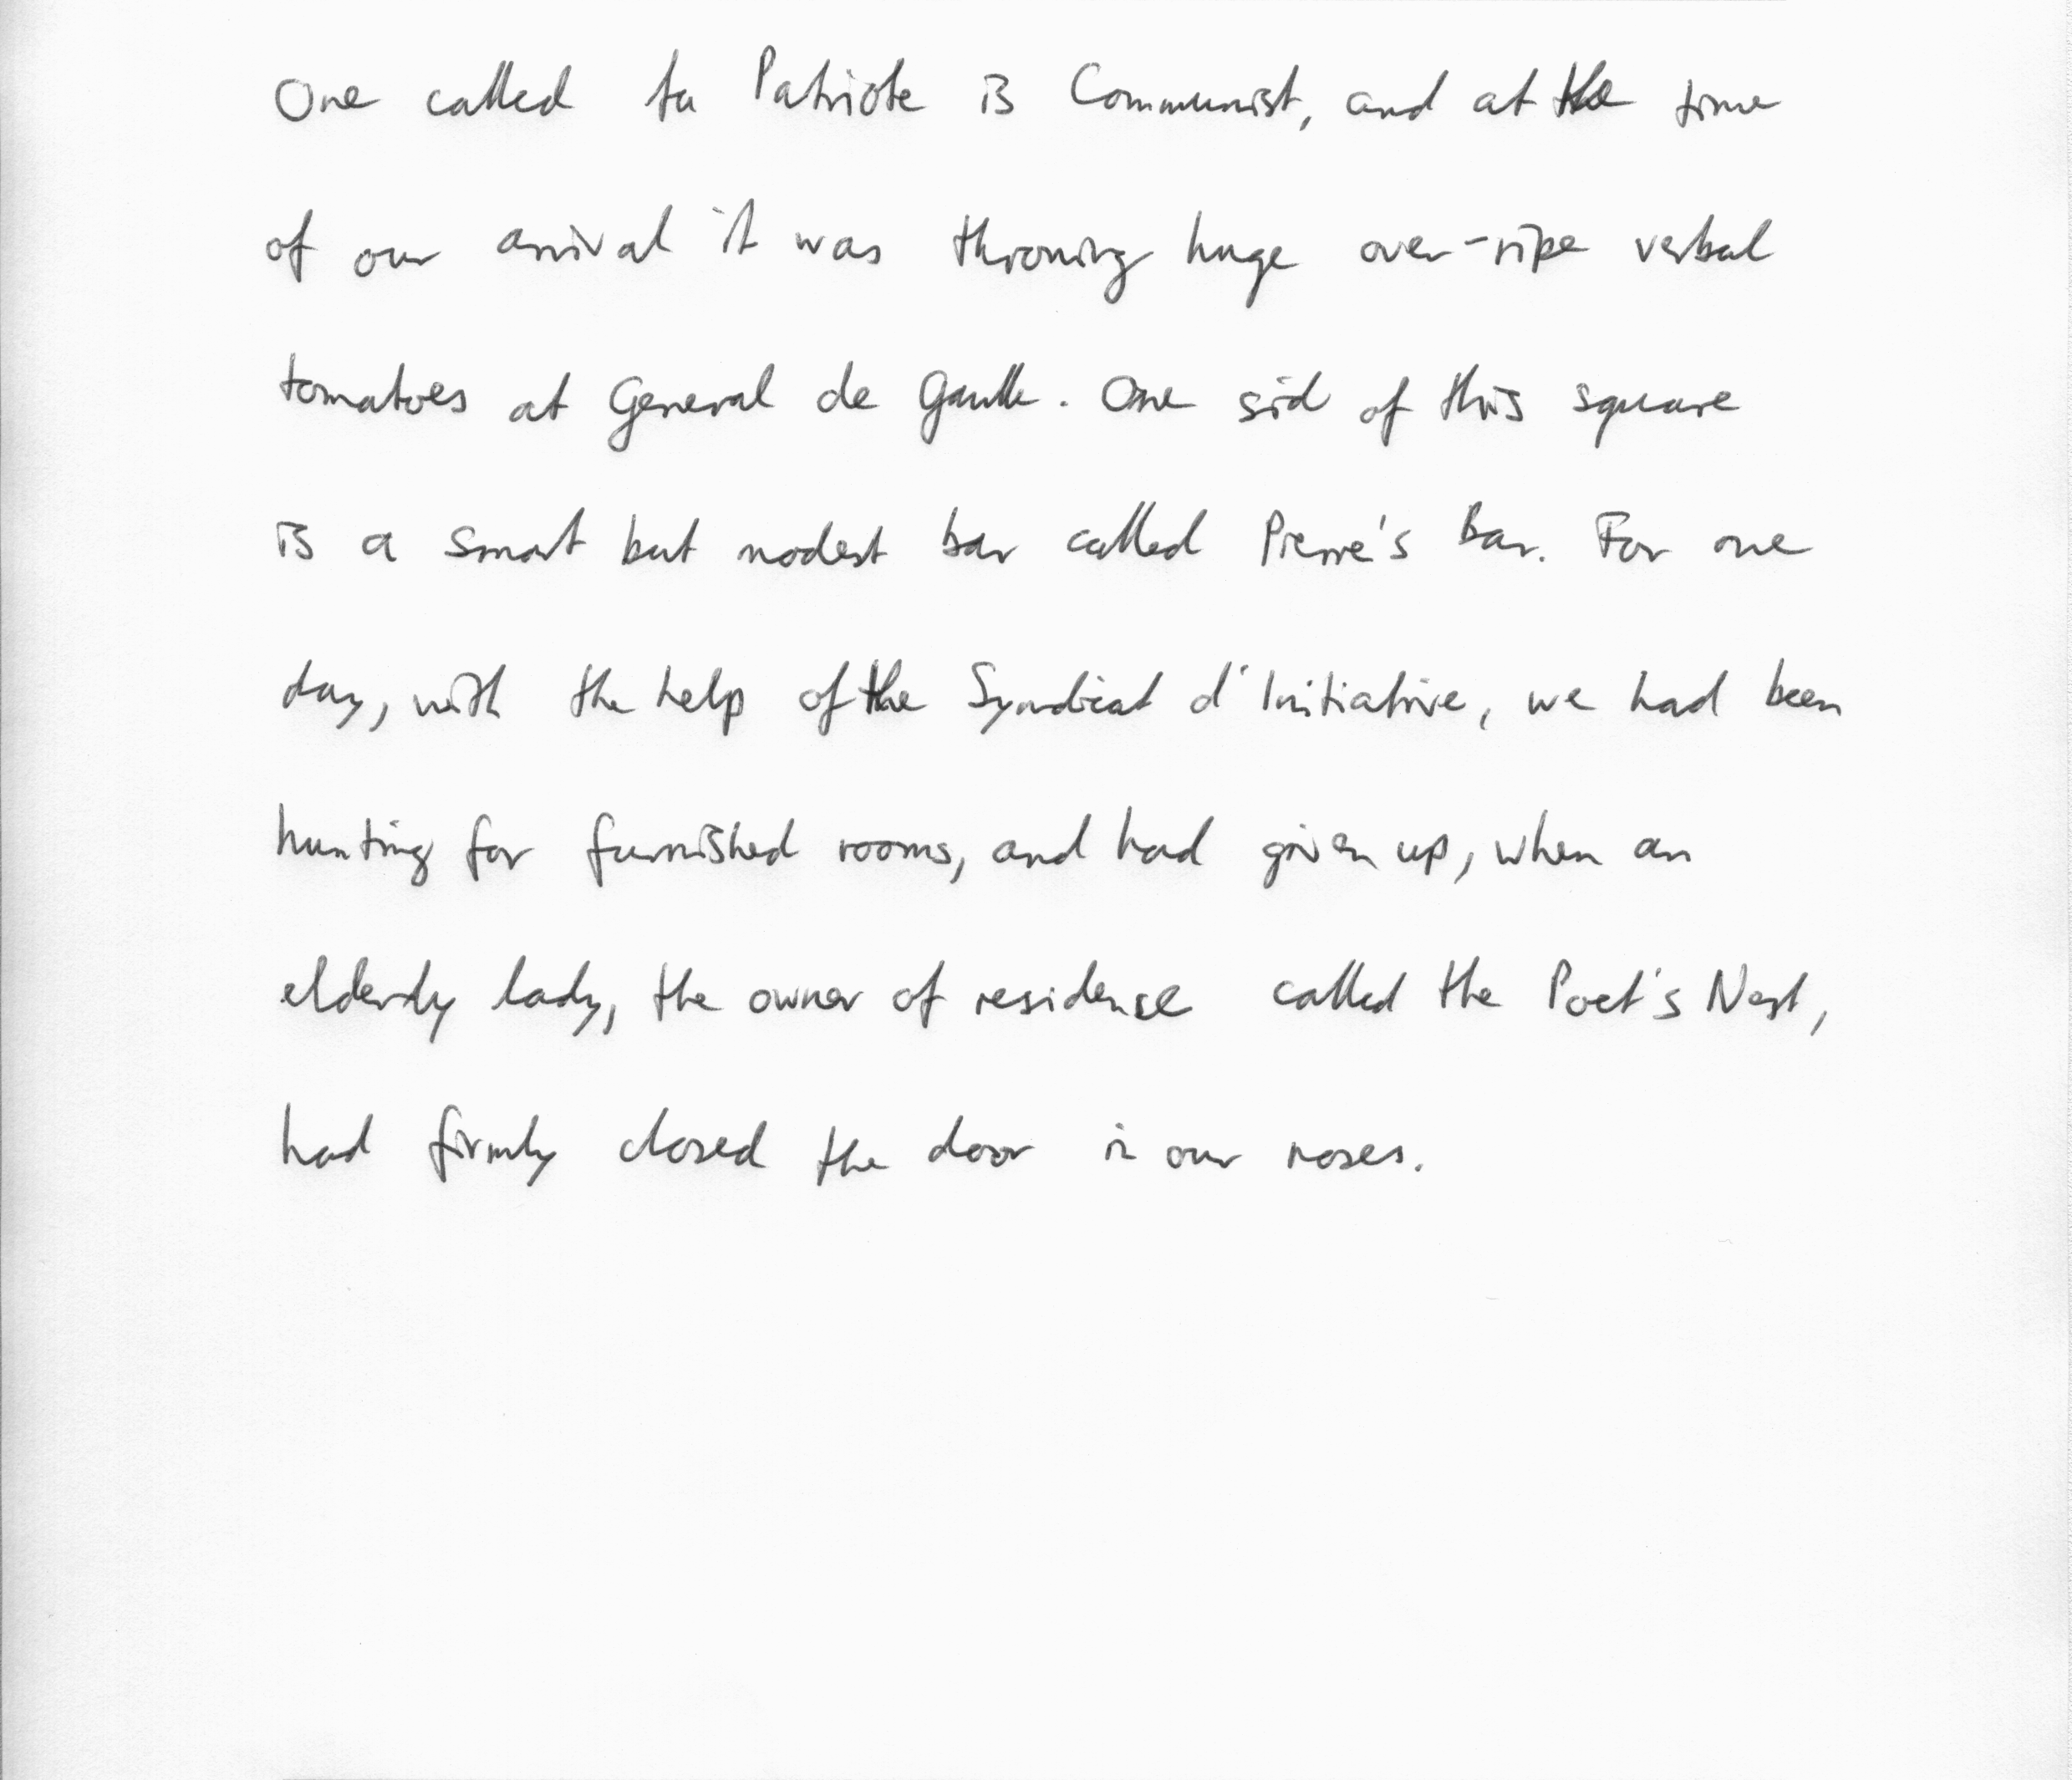 One called ta Patriote is Communist, and at the time
of our arrival it was throwing huge over-ripe verbal
tomatoes at General de Gaulle. One sid of this square
is a smart but modest bar called Pierre's Bar. For one
day, with the help of the Syndicat d'Initiative, we had been
hunting for furnished rooms, and had given up, when an
elderly lady, the owner of residense called the Poet's Nest,
had firmly closed the door in our noses.